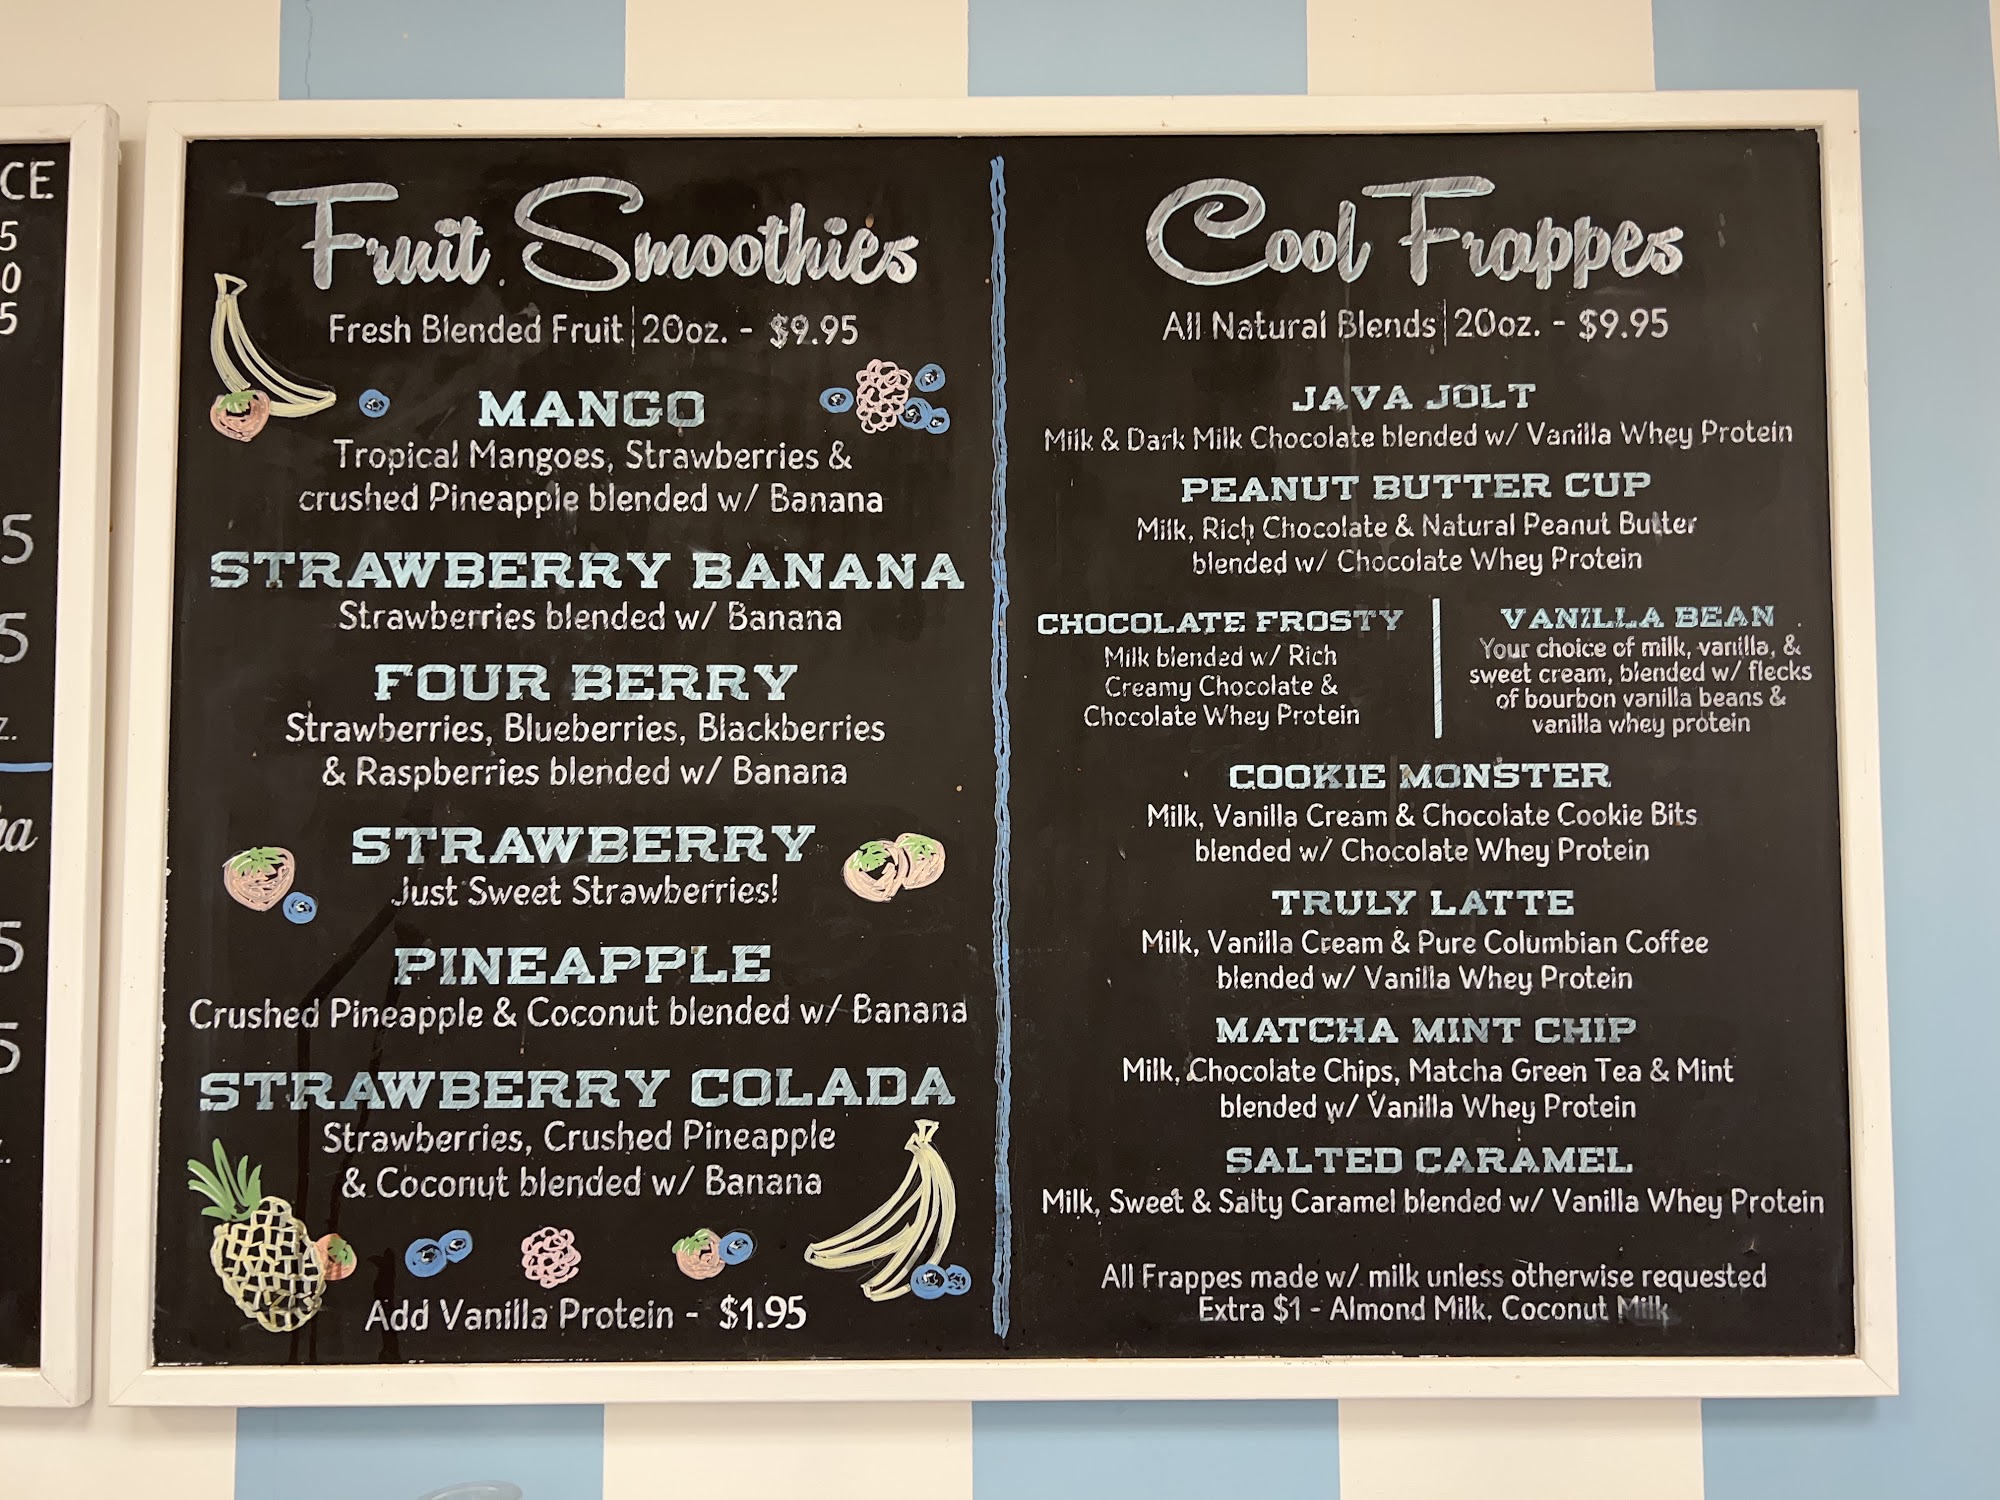 CE
5
0
5
5
5
z.
a
5
5
z.
Fruit Smoothies
Fresh Blended Fruit | 20oz. - $9.95
MANGO
Tropical Mangoes, Strawberries &
crushed Pineapple blended w/ Banana
STRAWBERRY BANANA
Strawberries blended w/ Banana
FOUR BERRY
Strawberries, Blueberries, Blackberries
& Raspberries blended w/ Banana
STRAWBERRY
Just Sweet Strawberries!
PINEAPPLE
Crushed Pineapple & Coconut blended w/ Banana
STRAWBERRY COLADA
Strawberries, Crushed Pineapple
& Coconut blended w/ Banana
Add Vanilla Protein - $1.95
Cool Frappes
All Natural Blends | 20oz. - $9.95
JAVA JOLT
Milk & Dark Milk Chocolate blended w/ Vanilla Whey Protein
PEANUT BUTTER CUP
Milk, Rich Chocolate & Natural Peanut Butter
blended w/ Chocolate Whey Protein
CHOCOLATE FROSTY
Milk blended w/ Rich
Creamy Chocolate &
Chocolate Whey Protein
VANILLA BEAN
Your choice of milk, vanilla, &
sweet cream, blended w/ flecks
of bourbon vanilla beans &
vanilla whey protein
COOKIE MONSTER
Milk, Vanilla Cream & Chocolate Cookie Bits
blended w/ Chocolate Whey Protein
TRULY LATTE
Milk, Vanilla Cream & Pure Columbian Coffee
blended w/ Vanilla Whey Protein
MATCHA MINT CHIP
Milk, Chocolate Chips, Matcha Green Tea & Mint
blended w/ Vanilla Whey Protein
SALTED CARAMEL
Milk, Sweet & Salty Caramel blended w/ Vanilla Whey Protein
All Frappes made w/ milk unless otherwise requested
Extra $1 - Almond Milk, Coconut Milk